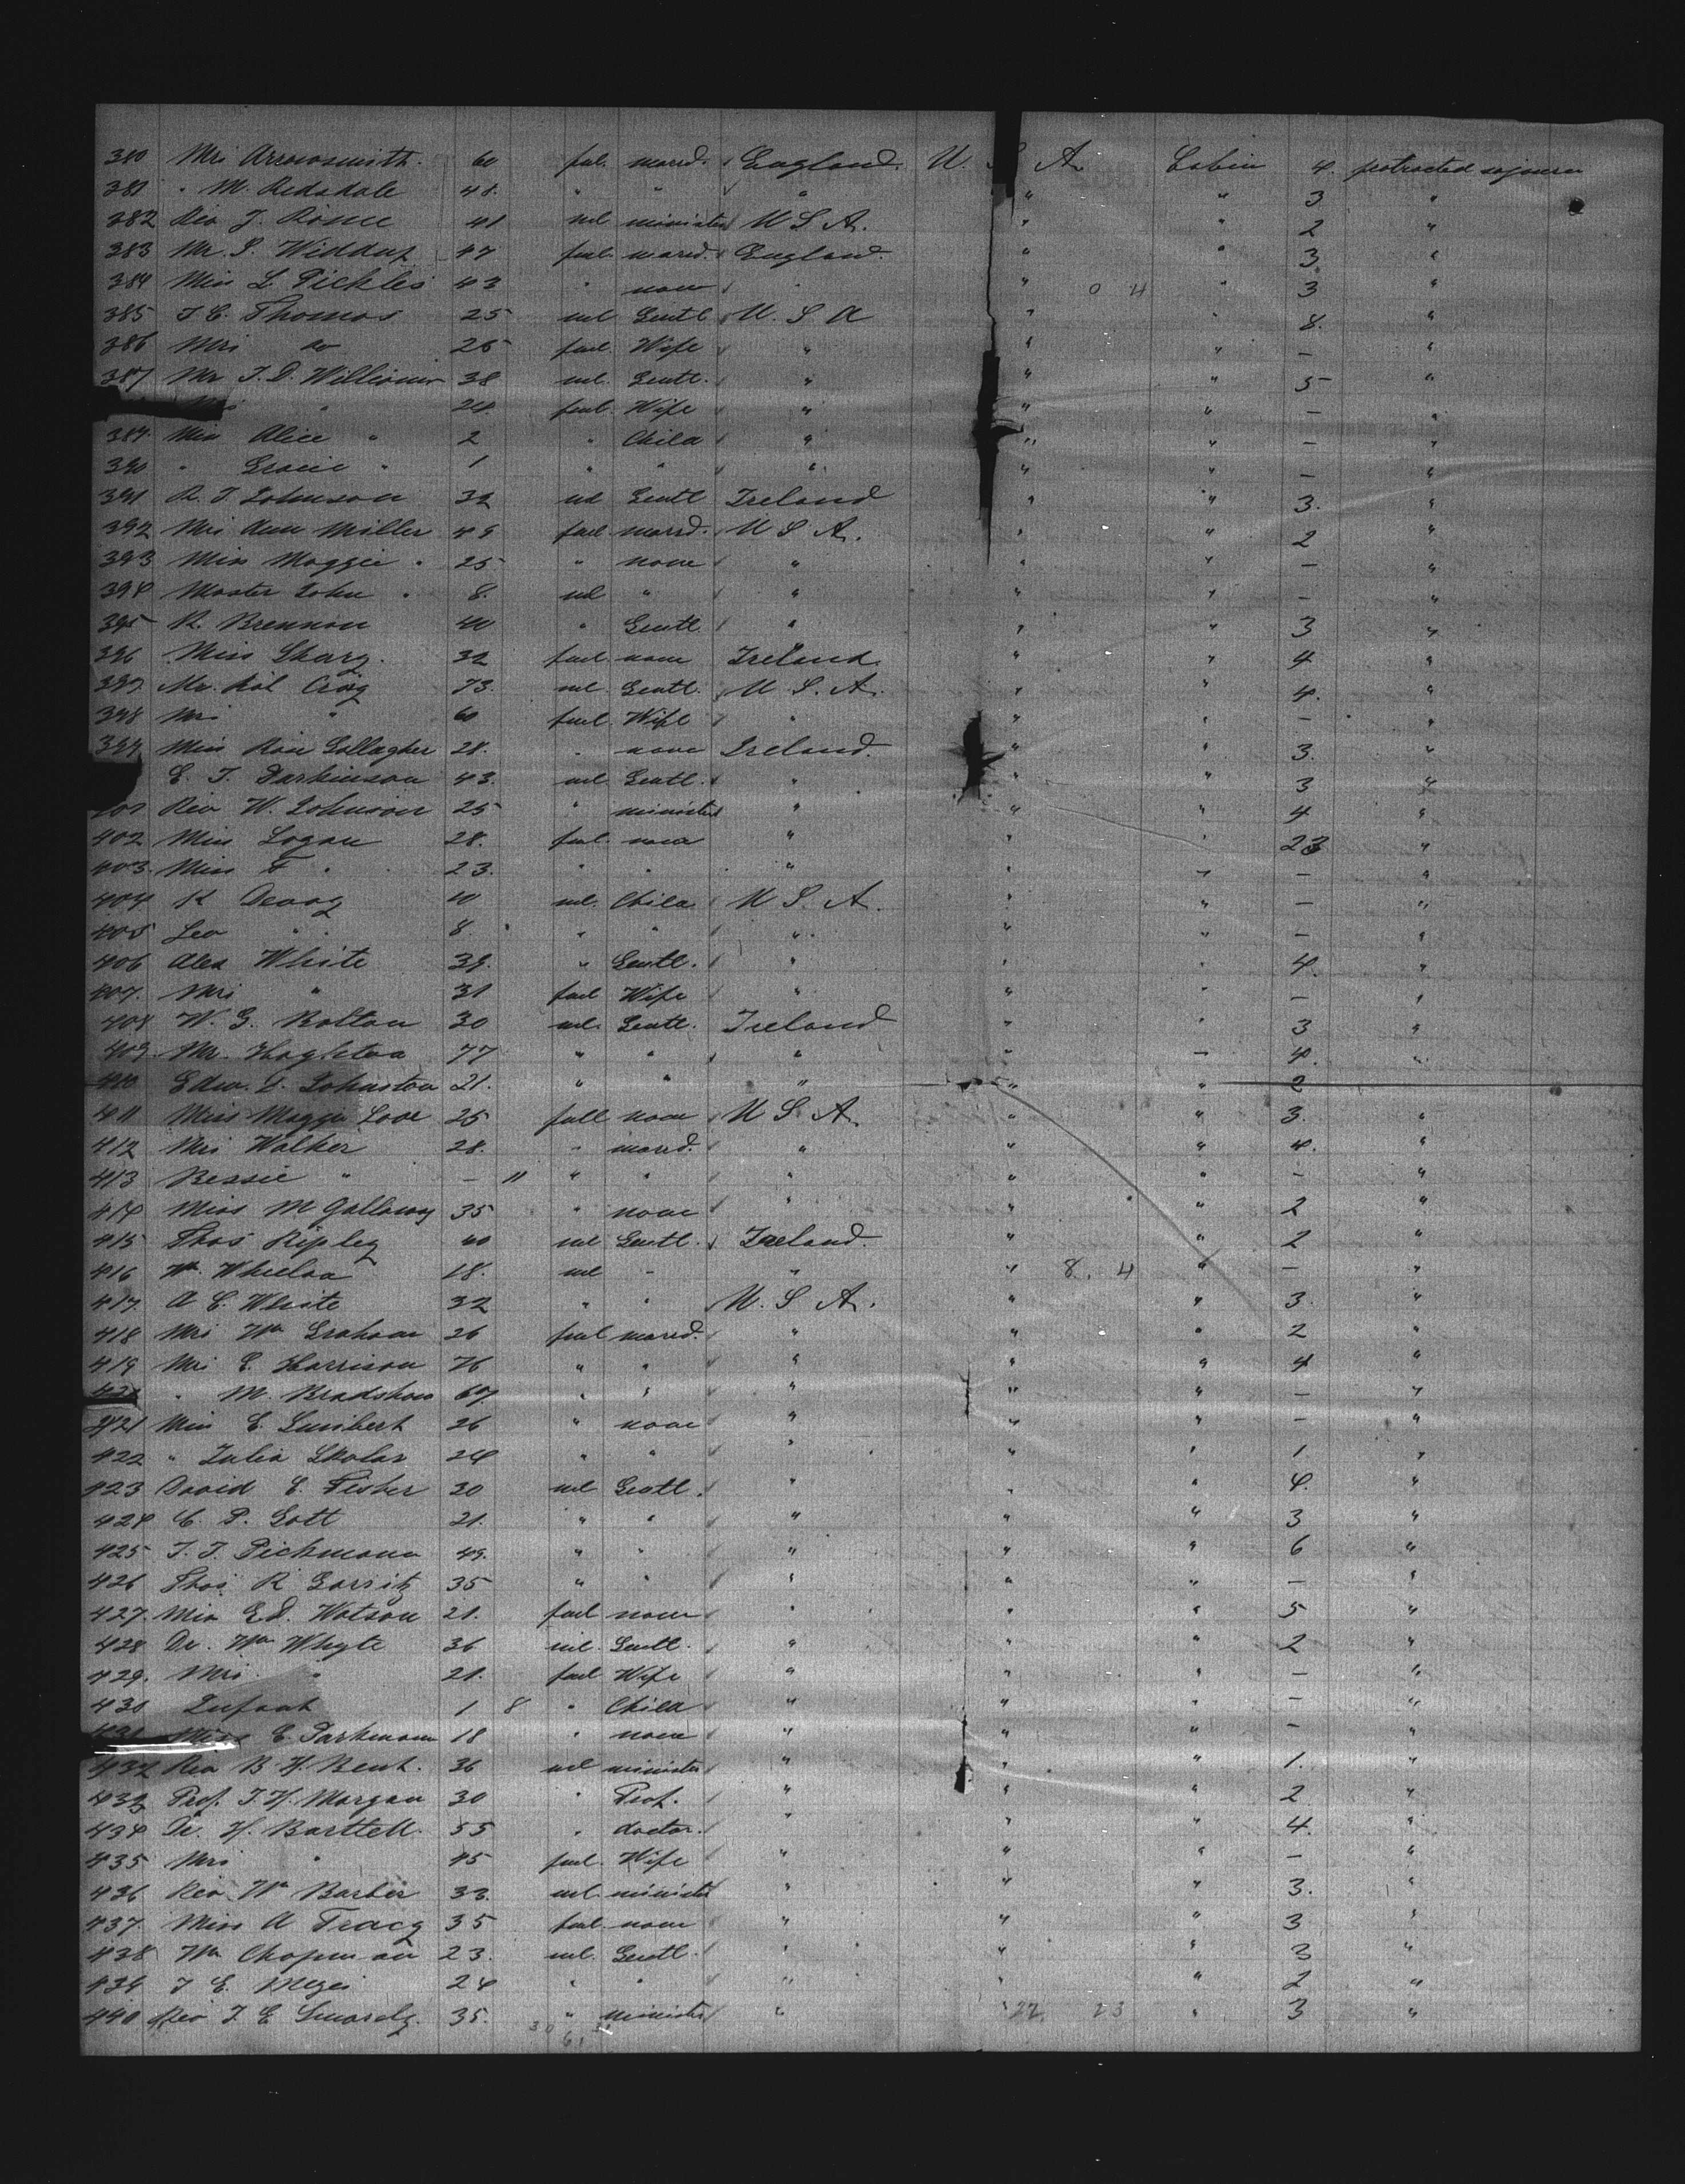 380 Mrs Arrowsmith. 60 feml. marrd. England. U. S. A. Cabin 4. protracted sojourn
381 " M. Redsdale 48. " " " " " 3 "
382 Rev J. 41 ml minister U S A. " " 2 "
383 Mr. S. Widdup 47 feml. marrd. England. " " 3 "
384 Miss L Pickles 43 " none " " 0 4 " 3 "
385 J. C. Thomas 25 ml Gentl U. S A " " 8. "
386 Mrs do 25 feml. Wife " " " – "
387 Mr J. D. Williams 38 ml. Gentl. " " " 5 "
" 24 feml Wife " " " – "
389. Miss Alice " 2 " Child " " " – "
390 " Gracie " 1 " " " " " – "
391 R. J. Johnson 32 ml Gentl Ireland " " 3. "
392 Mrs Ann Miller 49 feml marrd. U S A. " " 2 "
393 Miss Maggie " 25 " none " " " – "
394 Master John " 8. ml " " " " – "
395 R. Brennan 40 " Gentl " " " 3 "
396 Miss 32 feml none Ireland. " " 4 "
397. Mr. Craig 73. ml. Gentl. U. S. A. " " 4. "
398 Mrs " 60 feml. Wife " " " – "
399 Miss Rose Gallagher 28. " none Ireland. " " 3. "
E. T. Parkinson 43. ml Gentl. " " " 3 "
401 Rev W. Johnson 25 " minister " " " 4 "
402 Miss Logan 28. feml. none " " " 23 "
403. Miss F " 23. " " " " " – "
404 K 10 ml. Child U. S. A. " " – "
405 Leo " 8. " " " " " – "
406 Alex White 39. " Gentl. " " " 4. "
407. Mrs " 31 feml Wife " " " – "
408 W. G. Bolton 30 ml. Gentl. Ireland " " 3 "
409. Mr. 77 " " " " " 4. "
410 Edw. S. Johnston 21. " " " " " 2
411 Miss Maggie Love 25 feml none U S A. " " 3. "
412 Mrs Walker 28. " marrd. " " " 4. "
413 Bessie " – 11 " " " " " – "
414 Miss M Galloway 35 " none " " " 2 "
415 Thos Ripley 40 ml Gentl. Ireland. " " 2 "
416 Wm Whelan 18. ml " " " 8. 4 " – "
417. A C. White 32 " " U. S A. " " 3. "
418 Mrs Wm Graham 26 feml marrd. " " " 2 "
419 Mrs E. Harrison 76 " " " " " 4 "
420 " M. Bradshaw 67. " " " " " – "
421 Miss E. 26 " none " " " – "
422 " Julia 24 " " " " " 1. "
423 David E. Fisher 20 ml Gentl. " " " 4. "
424 C. P. Gott 21. " " " " " 3 "
425 J. J. 49. " " " " " 6 "
426 Thos. R 35 " " " " " – "
427. Miss E. D. Watson 21. feml none " " " 5 "
428 Dr. Wm Whyte 36 ml. Gentl. " " " 2 "
429. Mrs. " 21. feml Wife " " " – "
430 Infant 1 8 " Child " " " – "
431 Miss E. Parkman 18 " none " " " – "
432 Rev B. H. Bent. 36 ml minister " " " 1. "
433 Prof. T. H. Morgan 30 " Prof. " " " 2 "
434 Dr. H. Bartlett. 55 " doctor. " " " 4. "
435 Mrs " 45 feml. Wife " " " – "
436 Rev. Wm Barber 33. ml. minister " " " 3. "
437. Miss A Tracy 35 feml. none " " " 3 "
438 Wm Chapman 23. ml. Gentl. " " " 3 "
439 J E. 24 " " " " " 2 "
440 Rev J. E 35. " minister " " 22 23 " 3 "